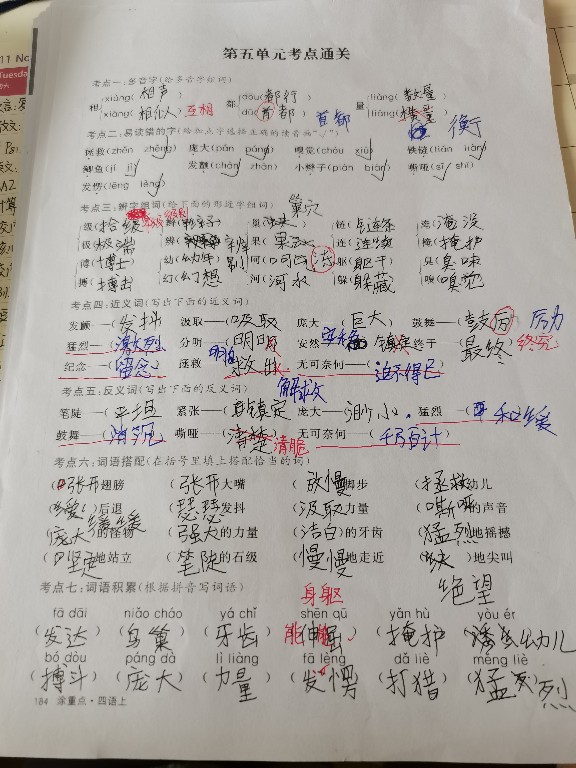 第五单元考点通关
考点一:多音字(给多音字组词)
相 xiāng(相声) 都 dōu(都行) 量 liáng(数量)
xiàng(相似人)互相 dū(首都)首都 liàng( ) 衡
考点二:易读错的字(给加点字选择正确的读音画“√”)
拯救(zhěn zhěng) 庞大(pán páng) 嗅觉(chòu xiù) 铁链(lián liàn)
鲫鱼(jì jí) 发颤(chàn zhàn) 小辫子(piàn biàn) 嘶哑(sī shī)
发愣(lēng lèng)
考点三:辨字组词(给下面的形近字组词) 巢穴
级( ) 辫( ) 巢( ) 链( ) 淹(淹没)
极(极端) 辨( ) 果(果实) 连(连续) 掩(掩护)
博(博士) 幼(幼年) 呵( ) 躯(躯干) 臭(臭味)
搏(搏击) 幻(幻想) 河(河水) 躲(躲藏) 嗅(嗅觉)
考点四:近义词(写出下面的近义词)
发颤—(发抖) 汲取—(吸取) 庞大—(巨大) 鼓舞—(鼓厉)
猛烈—(激烈) 分明—(明明) 安然— 终于—(最终)
纪念—(留念) 拯救—( ) 无可奈何—(迫不得已)
考点五:反义词(写出下面的反义词) 解救
笔陡—(平坦) 紧张—(镇定) 庞大—(渺小) 猛烈—(和缓)
鼓舞—(消沉) 嘶哑—(清楚)清脆 无可奈何—(千方百计)
考点六:词语搭配(在括号里填上搭配恰当的词)
(张开)翅膀 (张开)大嘴 (放慢)脚步 (拯救)幼儿
(缓缓)后退 (瑟瑟)发抖 (汲取)力量 (嘶哑)的声音
(庞大)的怪物 (强大)的力量 (洁白)的牙齿 (猛烈)地摇撼
(坚定)地站立 (笔陡)的石级 (慢慢)地走近 ( )地尖叫
绝望
考点七:词语积累(根据拼音写词语) 身躯
fā dāi niǎo cháo yá chǐ shēn qū yǎn hù yòu ér
(发达) (鸟巢) (牙齿) ( ) (掩护) (幼儿)
bó dòu páng dà lì liàng fā lèng dǎ liè měng liè
(搏斗) (庞大) (力量) (发愣) (打猎) (猛烈)
184 涂重点·四语上